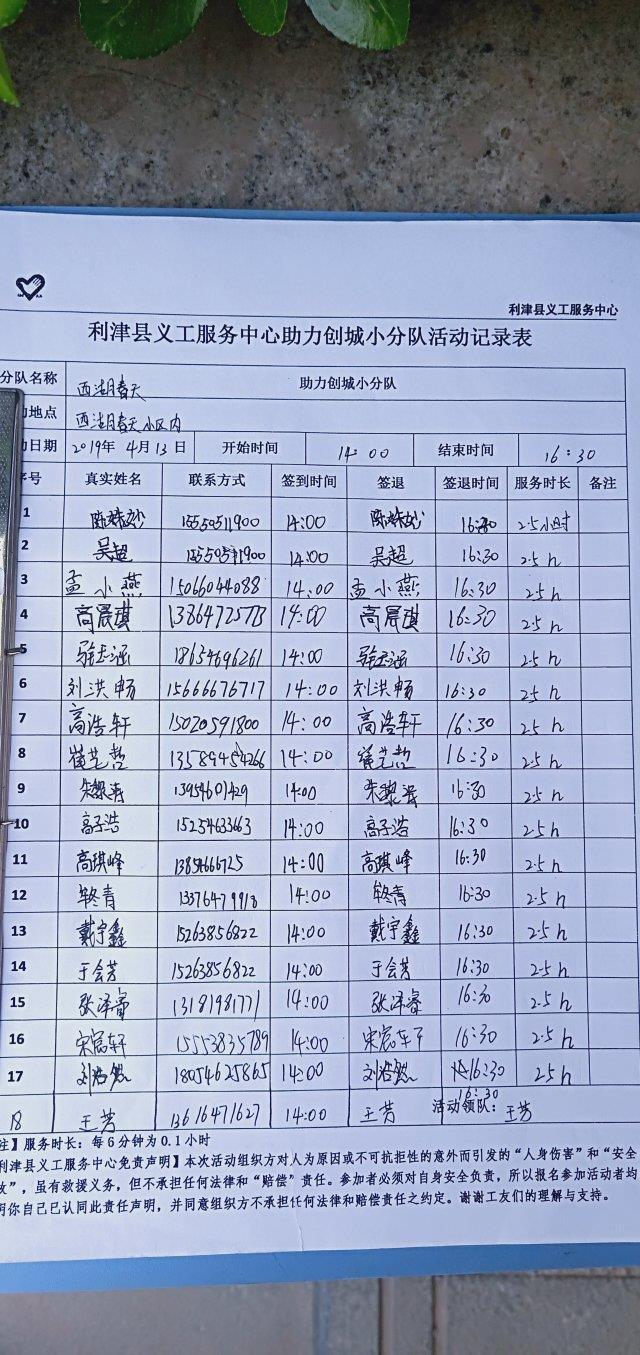 利津县义工服务中心
利津县义工服务中心助力创城小分队活动记录表
分队名称 西湖春天 助力创城小分队
动地点 西湖春天小区内
动日期 2019年 4月 13日 开始时间 14:00 结束时间 16:30
序号 真实姓名 联系方式 签到时间 签退 签退时间 服务时长 备注
1 15550511900 14:00 16:30 2.5小时
2 吴超 15550511900 14:00 吴超 16:30 2.5h
3 孟小燕 15066044088 14:00 孟小燕 16:30 2.5h
4 高晨琪 13864725773 14:00 高晨琪 16:30 2.5h
5 18654696261 14:00 16:30 2.5h
6 刘洪畅 15666676717 14:00 刘洪畅 16:30 2.5h
7 高浩轩 15020591800 14:00 高浩轩 16:30 2.5h
8 崔艺哲 13589454266 14:00 崔艺哲 16:30 2.5h
9 13954601429 14:00 16:30 2.5h
10 高子浩 15254633663 14:00 高子浩 16:30 2.5h
11 高琪峰 13854666725 14:00 高琪峰 16:30 2.5h
12 14:00 16:30 2.5h
13 戴宇鑫 15263856822 14:00 戴宇鑫 16:30 2.5h
14 于会芳 15263856822 14:00 于会芳 16:30 2.5h
15 张泽睿 13181981771 14:00 张泽睿 16:30 2.5h
16 15553835789 14:00 16:30 2.5h
17 刘浩然 18054625865 14:00 刘浩然 16:30 2.5h
18 王芳 13616471627 14:00 王芳 16:30 活动领队: 王芳
注】服务时长：每6分钟为0.1小时
利津县义工服务中心免责声明】本次活动组织方对人为原因或不可抗拒性的意外而引发的“人身伤害”和“安全
故”，虽有救援义务，但不承担任何法律和“赔偿”责任。参加者必须对自身安全负责，所以报名参加活动者均
明你自己已认同此责任声明，并同意组织方不承担任何法律和赔偿责任之约定。谢谢工友们的理解与支持。